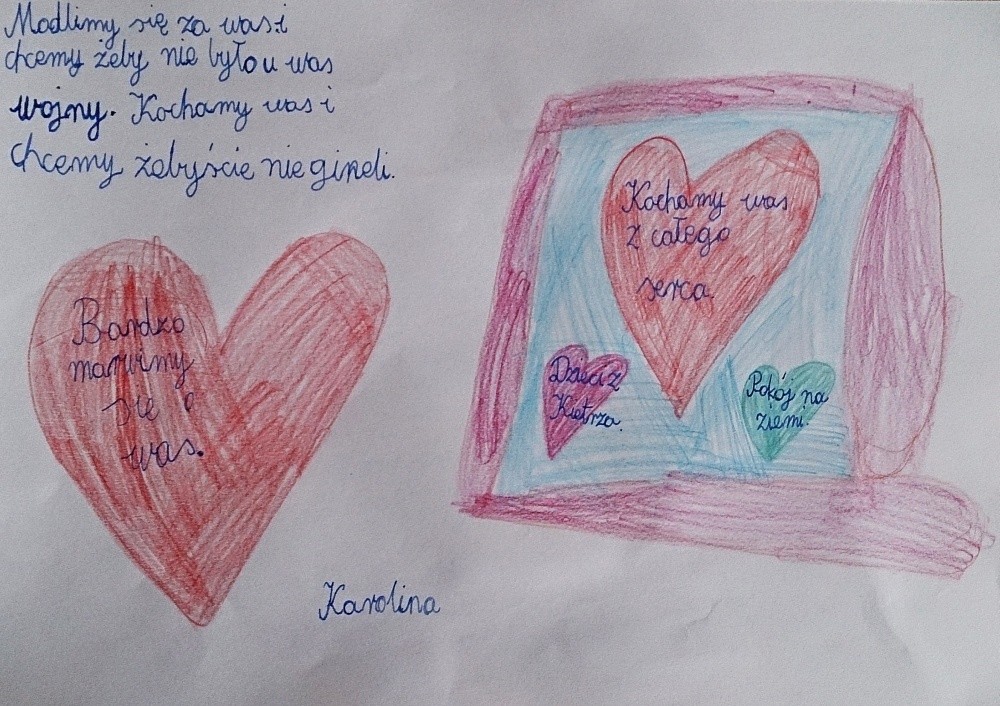 Modlimy się za was i
chcemy żeby nie było u was
wojny. Kochamy was i
chcemy żebyście nie gineli.
Bardzo
marwimy
się o
was.
Kochamy was
z całego
serca.
Dzieci z
Kietrza.
Pokój na
ziemi.
Karolina